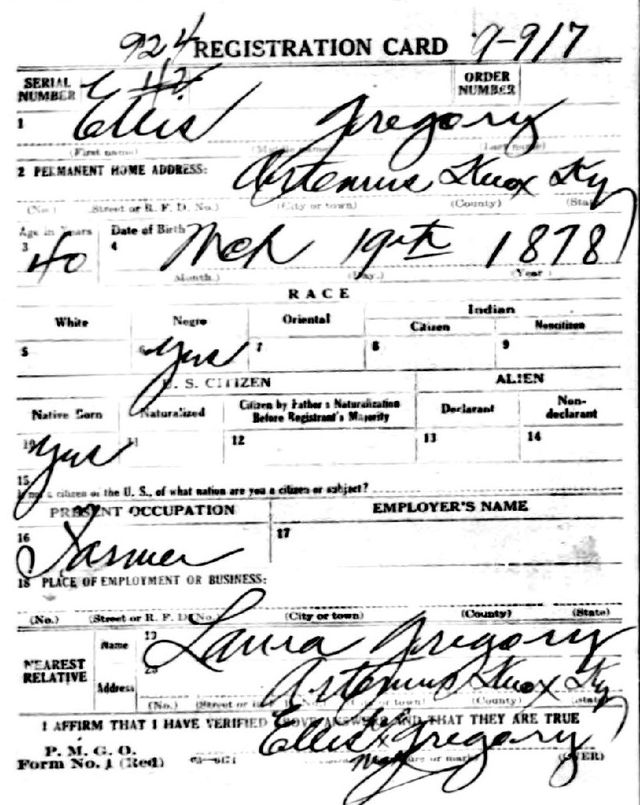 924 REGISTRATION CARD 9-917
SERIAL NUMBER 42 ORDER NUMBER
1 Ellis Gregory
(First name) (Middle name) (Last name)
2 PERMANENT HOME ADDRESS: Artemus Knox Ky
(No.) (Street or R. F. D. No.) (City or town) (County) (State)
Age in Years Date of Birth
3 40 4 Mch 19th 1878
(Month.) (Day.) (Year)
RACE
White Negro Oriental Indian
Citizen Noncitizen
5 6 yes 7 8 9
U. S. CITIZEN ALIEN
Native Born Naturalized Citizen by Father's Naturalization Before Registrant's Majority Declarant Non-declarant
10 yes 11 12 13 14
15
If not a citizen of the U. S., of what nation are you a citizen or subject?
PRESENT OCCUPATION EMPLOYER'S NAME
16 Farmer 17
18 PLACE OF EMPLOYMENT OR BUSINESS:
(No.) (Street or R. F. D. No.) (City or town) (County) (State)
NEAREST RELATIVE Name 19 Laura Gregory
Address 20 Artemus Knox Ky
(No.) (Street or R. F. D. No.) (City or town) (County) (State)
I AFFIRM THAT I HAVE VERIFIED ABOVE ANSWERS AND THAT THEY ARE TRUE
P. M. G. O.
Form No. 1 (Red) Ellis x Gregory
(Signature or mark) (OVER)